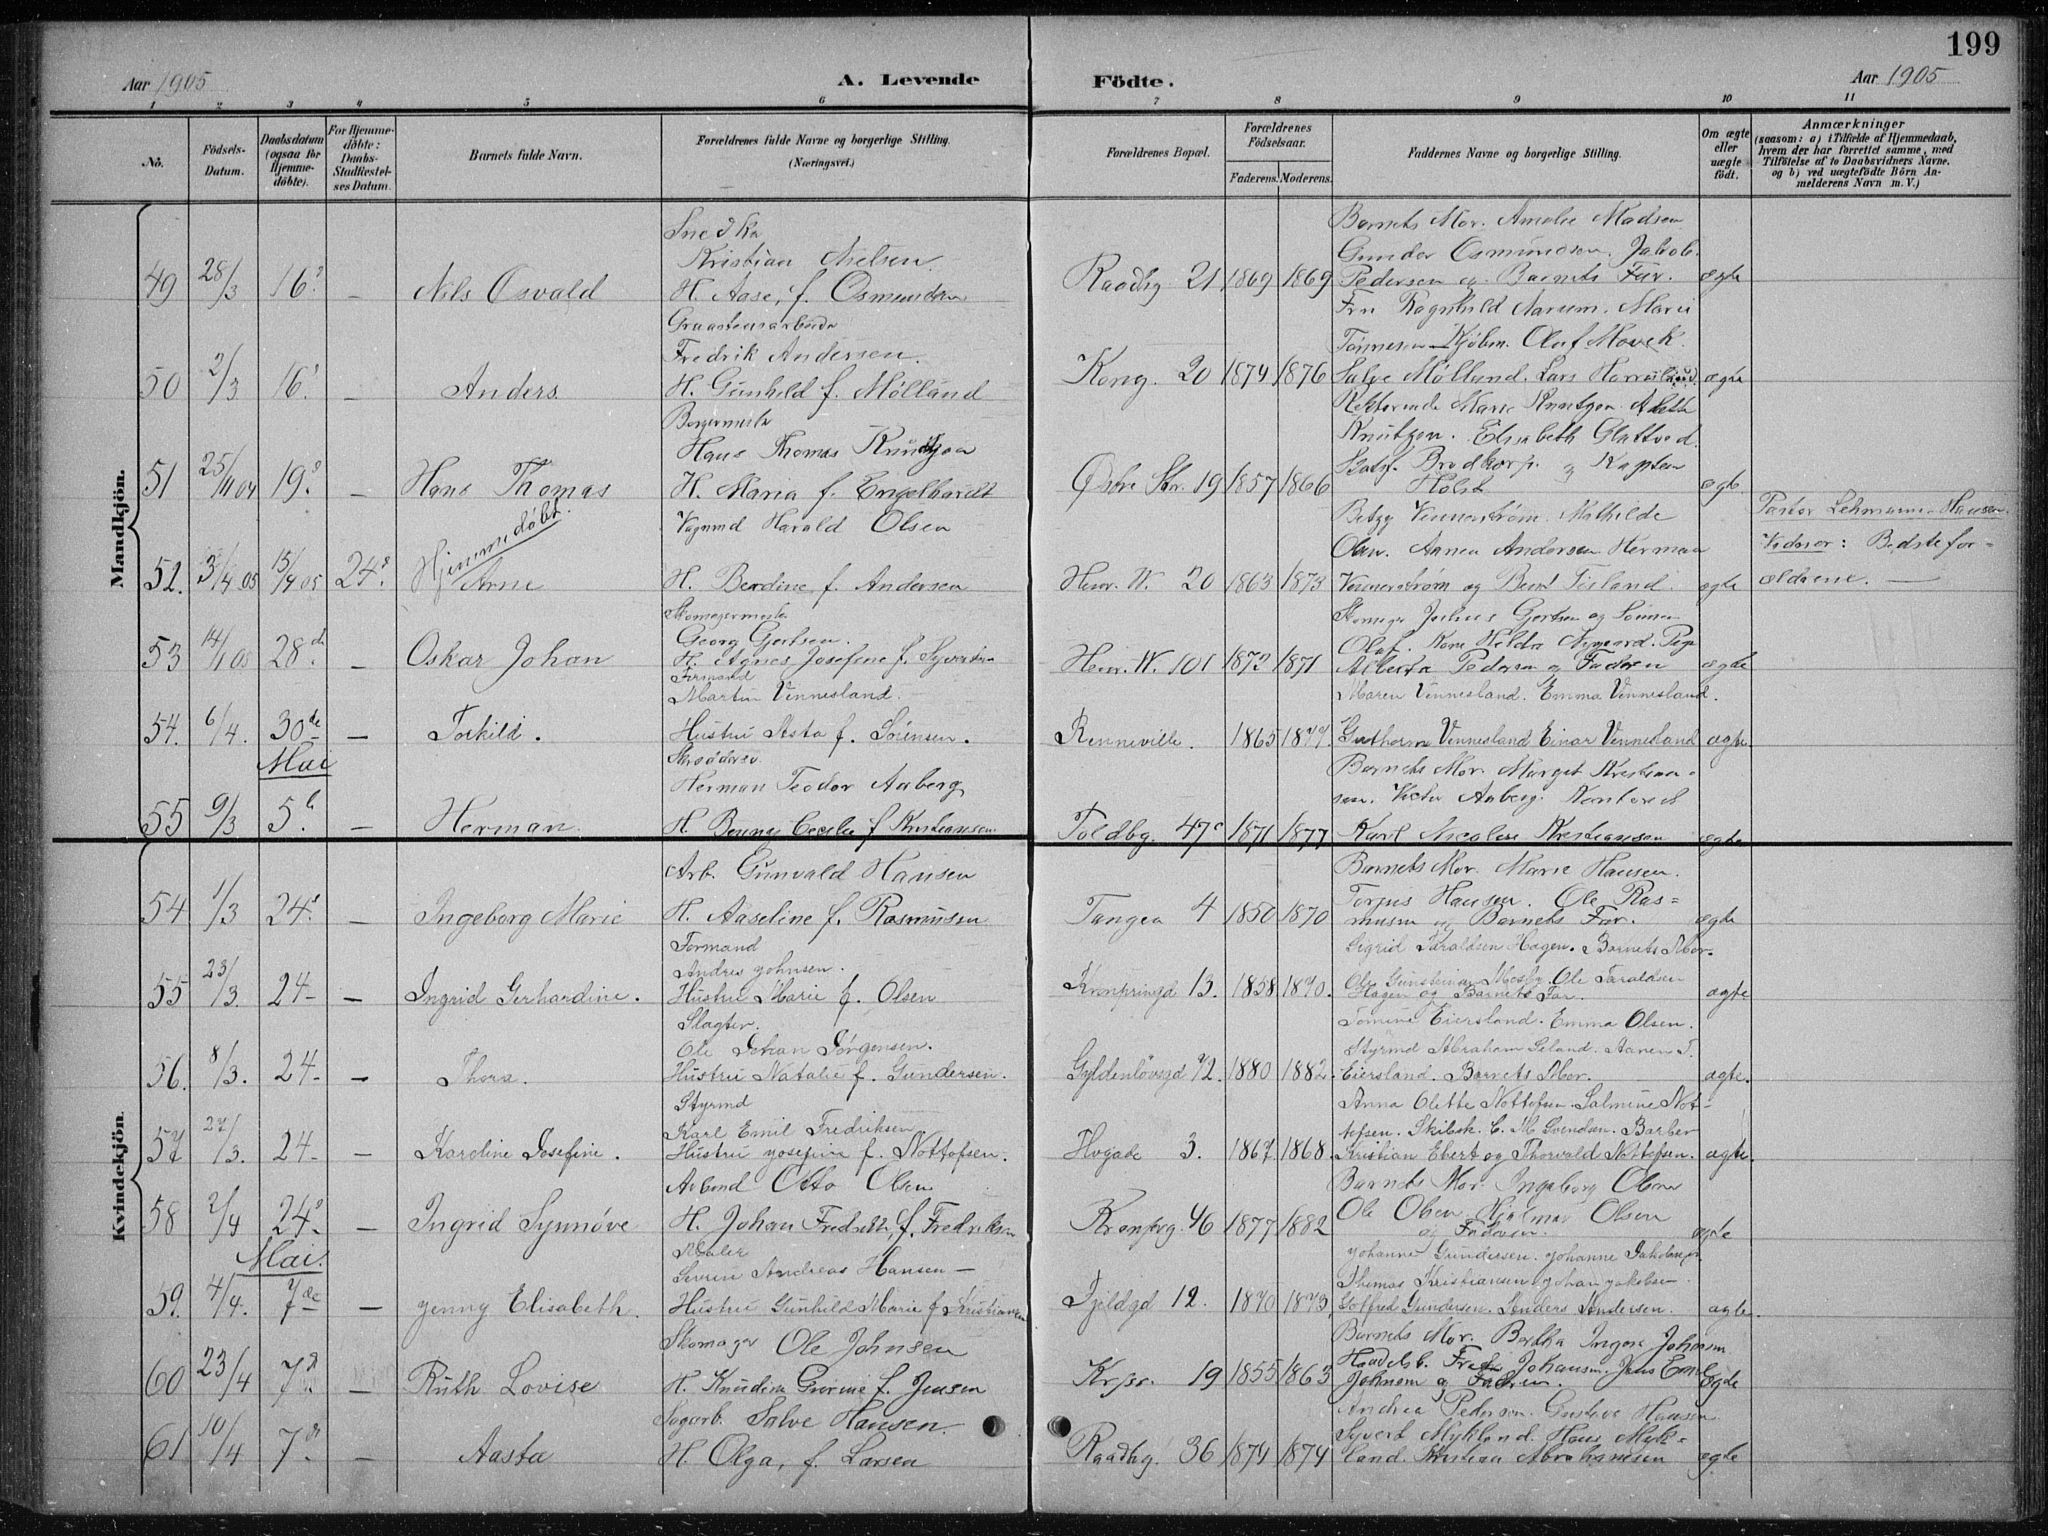 199
Aar 1905
A. Levende
Födte.
Aar 1905
1 2 3 4 5 6 7 8 9 10 11
No.
Födsels-
Datum.
Daabsdatum
(ogsaa för
Hjemme-
döbte).
For Hjemme-
döbte:
Daabs-
Stadfæstel-
ses Datum.
Barnets fulde Navn.
Forældrenes fulde Navne og borgerlige Stilling.
(Næringsvei.)
Forældrenes Bopæl.
Forældrenes
Födselsaar.
Faderens. Moderens.
Faddernes Navne og borgerlige Stilling.
Om ægte
eller
uægte
födt.
Anmærkninger
(saasom: a) i Tilfælde af Hjemmedaab,
hvem der har forrettet samme, med
Tilföielse af to Daabsvidners Navne,
og b) ved uægtefödte Börn An-
melderens Navn m. V.)
Mandkjön.
49 28/3 16. — Nils Osvald
Kristian Nielsen
H. Aase, f. Osmundsen
Raadhg 21 1869 1869
Barnets Mor. Amalie Madsen
Gunder Osmundsen. Jakob.
Pedersen og Barnets Far. ægte
50 2/3 16. — Anders
Fredrik Andersen.
H. Gunhild f. Mølland
Kong. 20 1874 1876
Fru Ragnhild Aarum. Marie
Tønnesen Kjøbm. Olaf Movek.
Salve Mølland. Lars ægte
51 25/11 04 19. — Hans Thomas
Borgermester
Hans Thomas Knudtzon
H. Maria f. Engelhardt
Østre Str. 19 1857 1866
Marie Knutzon.
Knutzon. Elisabeth Glattved
Kaptein
Holst ægte
52. 3/4 05 15/4 05 24. Hjemmedøbt. Arne
Vognmd Harald Olsen
H. Berdine f. Andersen
Henr. W. 20 1863 1873
Betzy Vennerstrøm. Mathilde
Olsen. Andersen Herman
Vennerstrøm og Berit ægte
Pastor Lehmann-Hansen.
Vidner: Bedstefor-
ældrene. —
53 14/1 05 28. — Oskar Johan
Skomagermester
Georg Gertsen.
H. Agnes Josefine f. Syvertsen
Henr. W. 101 1872 1871
Julius Gertsen og
Olaf. Kone Hilda Pige
Alberta Pedersen og Faderen ægte
54. 6/4. 30de — Torkild.
Formand
Martin Vennesland.
Hustru Asta f. Sørensen.
Renneville. 1865 1877.
Maren Vennesland. Emma Vennesland.
Guthorm Vennesland Einar Vennesland ægte
Mai
55 9/3 5. — Herman.
Herman Teodor Aaberg
H. Benny Cecilie f. Kristiansen
Toldbg. 47c 1871 1877
Barnets Mor. Margit Kristian-
sen. Victor Aaberg. Kontorist
Karl Nicolai Kristiansen ægte
Kvindekjön.
54 1/3 24. — Ingeborg Marie
Arb. Gunvald Hansen
H. Aaseline f. Rasmussen
Tangen 4 1850 1870
Barnets Mor. Marie Hansen.
Torjus Hansen. Ole Ras-
mussen og Barnets Far. ægte
55 23/3. 24 — Ingrid Gerhardine.
Formand
Andres Johnsen.
Hustru Marie f. Olsen
Kronpringd 13. 1858 1870.
Sigrid Taraldsen Hagen. Barnets Mor.
Ole Gunsteinsen Mosby. Ole Taraldsen
Hagen og Barnets Far. ægte
56. 8/3. 24 — Thora.
Slagter.
Ole Johan Jørgensen.
Hustru Natalie f. Gundersen.
Gyldenløvsgd 72. 1880 1882.
Tomine Eiersland. Emma Olsen.
Styrmd Abraham Seland. Aanen T.
Eiersland. Barnets Mor. ægte.
57 27/3. 24 — Karoline Josefine.
Styrmd
Karl Emil Fredriksen
Hustru Josefine f. Nottofsen.
Hvgade 3. 1867. 1868.
Anna Olette Nottofsen. Salmine Not-
tofsen. Skibsk. C. M. Svendsen. Barber
Kristian Ebert og Thorvald Nottofsen. ægte.
58 2/4 24. — Ingrid Synnøve
Arbmd Otto Olsen
H. Johan Fredrikke, f. Fredriksen
Kronprg. 46 1877 1882
Barnets Mor. Ingeborg Olsen
Ole Olsen. Hjalmar Olsen
og Faderen. ægte
Mai.
59. 4/4. 7de — Jenny Elisabeth
Maler
Severin Andreas Hansen —
Hustru Gunhild Marie f. Kristiansen
Fjeldgd 12. 1870 1873,
Johanne Gundersen. Johanne Jakobsen
Thomas Kristiansen Johan Jakobsen
Gotfred Gundersen. Anders Andersen. ægte.
60 23/4 7. — Ruth Lovise
Skomager Ole Johnsen
H. Knudine Gurine f. Jensen
Krpr. 19 1855 1863
Barnets Mor. Bertha Ingora Johnsen
Johansen. Jens Emil
Johnsen og Faderen. ægte
61 10/4 7. — Aasta
Salve Hansen.
H. Olga, f. Larsen
Raadhg. 36 1874 1874
Andrea Pedersen. Gustava Hansen
Syvert Mykland. Hans Myk-
land. Kristian Abrahamsen ægte